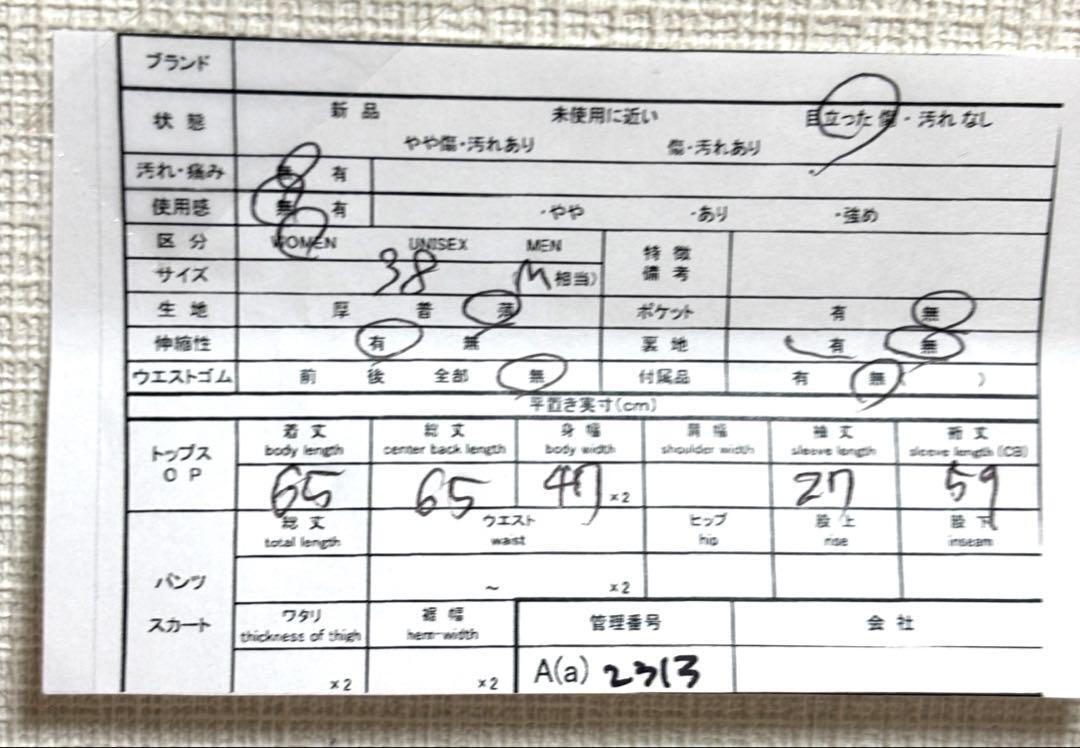 ブランド
状態 新品 未使用に近い 目立った傷・汚れなし
やや傷・汚れあり 傷・汚れあり
汚れ・痛み 無 有
使用感 無 有 ・やや ・あり ・強め
区分 WOMEN UNISEX MEN 特徴備考
サイズ 38 (M相当)
生地 厚 普 薄 ポケット 有 無
伸縮性 有 無 裏地 有 無
ウエストゴム 前 後 全部 無 付属品 有 無( )
平置き実寸(cm)
トップス OP 着丈 総丈 身幅 肩幅 袖丈 裄丈
body length center back length body width shoulder width sleeve length sleeve length(CB)
65 65 47 ×2 27 59
総丈 ウエスト ヒップ 股上 股下
total length waist hip rise inseam
パンツ ~ ×2
スカート ワタリ 裾幅 管理番号 会社
thickness of thigh hem-width
×2 ×2 A(a) 2313